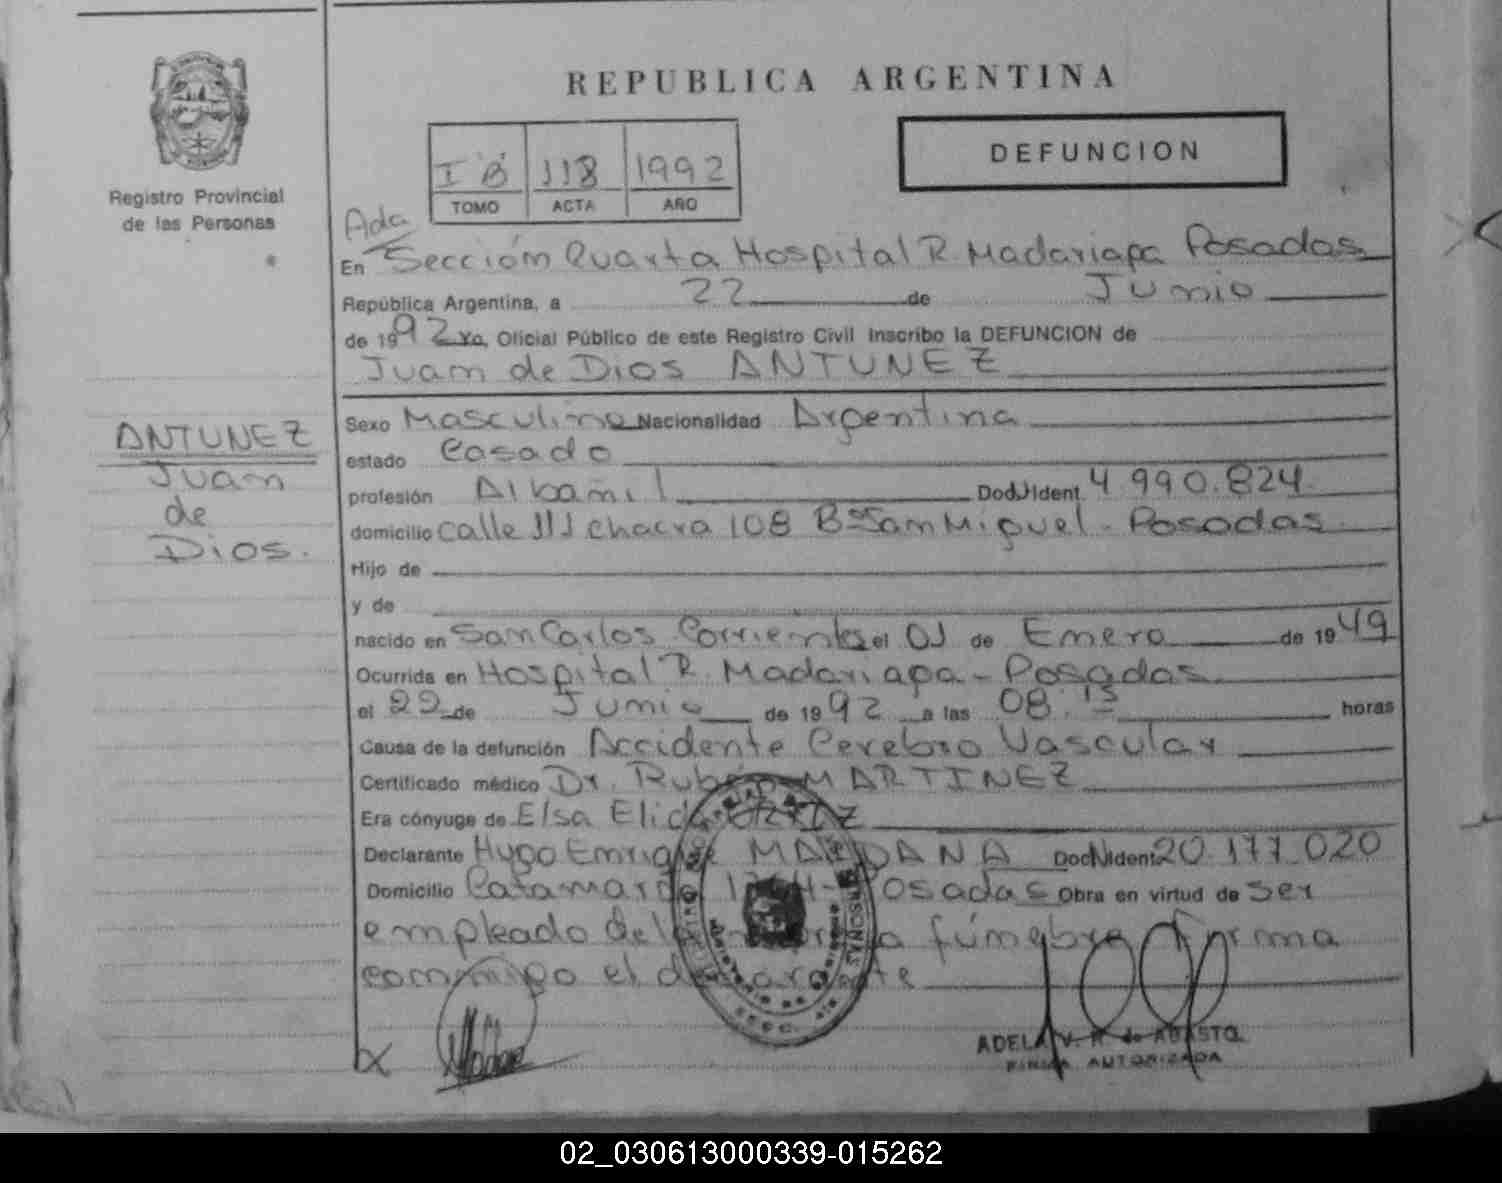 REPUBLICA ARGENTINA
Registro Provincial
de las Personas
I B 118 1992
TOMO ACTA AÑO
DEFUNCION
Ada
En Sección Quarta Hospital R. Madariaga Posadas
República Argentina, a 22 de Junio
de 1992 Yo, Oficial Público de este Registro Civil Inscribo la DEFUNCION de
Juan de Dios ANTUNEZ
ANTUNEZ
Juan
de
Dios.
Sexo Masculino Nacionalidad Argentina
estado Casado
profesión Albañil Doc. Ident. 4 990.824.
domicilio Calle 111 chacra 108 Bº San Miguel - Posadas.
Hijo de
y de
nacido en San Carlos Corrientes el 01 de Enero de 1949
Ocurrida en Hospital R. Madariaga - Posadas.
el 22 de Junio de 1992 a las 08:15 horas
Causa de la defunción Accidente Cerebro Vascular
Certificado médico Dr. Rubén MARTINEZ
Era cónyuge de Elsa Elida
Declarante Hugo Enrique MAIDANA Doc. Ident. 20.177.020
Domicilio Posadas Obra en virtud de ser
empleado de fúnebre Firma
conmigo el declarante
X
ADELA V. de ABASTO
FIRMA AUTORIZADA
02_030613000339-015262